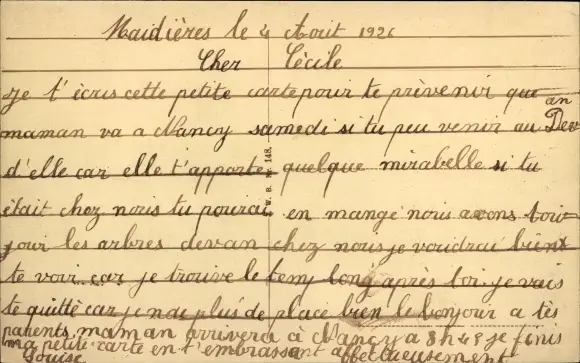 Maidières le 4 Aout 1926
Cher Cécile
je t'écris cette petite carte pour te prévenir que
maman va a Nancy samedi si tu peu venir au Devan
d'elle car elle t'apporte quelque mirabelle si tu
était chez nous tu pourai en mangé nous avons touj
jour les arbres devan chez nous je voudrai bien
te voir car je trouve le temp long après toi. je vais
te quitté car je nai plus de place bien le bonjour a tes
parents, maman arrivera à Nancy a 8h48 je finis
ma petite carte en t'embrassant affectueusement
Louise
W. B. N. 148.